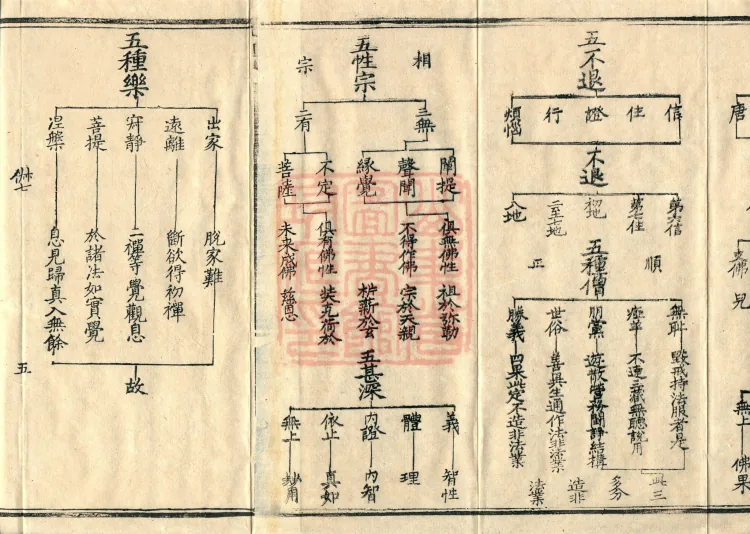 唐
無上 佛果
五不退
信
住
證
行
煩惱
不退
第六信
第七住
初地
二至七地
八地
順
正
五種僧
無恥 毀戒持法服者是
瘂羊 不達三藏無聽說用
朋黨 遊散營務鬪諍結搆
世俗 善異生通作法非法業
勝義 四果此定不造非法業
此三
多分
造非
法業
相
五性宗
宗
三無
二有
闡提
聲聞
緣覺
不定
菩薩
俱無佛性 祖於弥勒
不得作佛 宗於天親
俱有佛性
未來成佛 慈恩
五甚深
義 智性
體 理
內證 內智
依止 真如
無上 妙用
五種樂
出家 脫家難
遠離 斷欲得初禪
寂靜 二禪等覺觀息
菩提 於諸法如實覺
涅槃 息見歸真入無餘
故
五